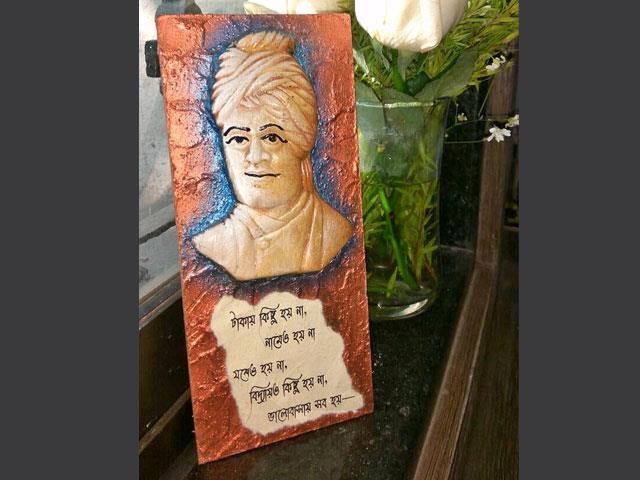 টাকায় কিছু হয় না,
নামেও হয় না
যশেও হয় না,
বিদ্যায়ও কিছু হয় না,
ভালোবাসায় সব হয়—